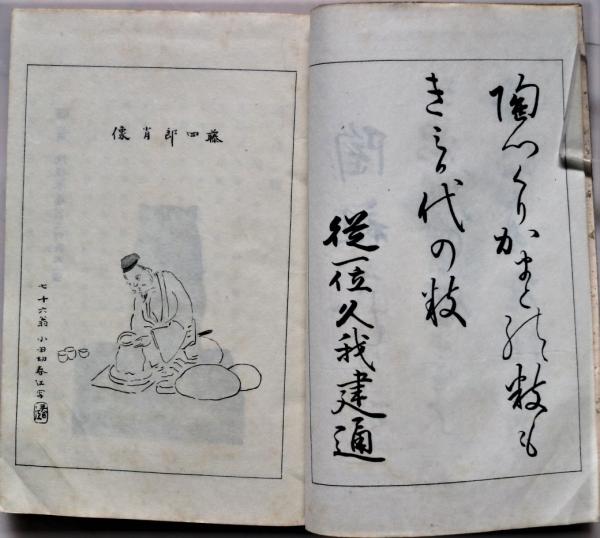 陶つくりかまとの数も
きみか代の数
從一位久我建通
藤四郎肖像
七十六翁 小田切春江写